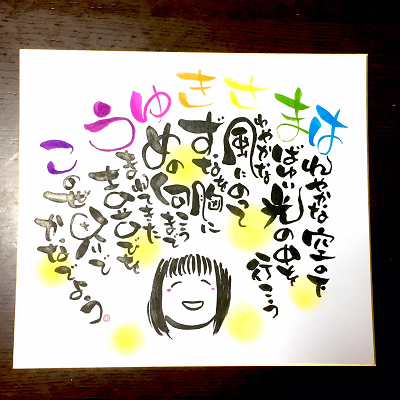 はれやかな空の下
まばゆい光の中を
行こう
さわやかな
風にのって
きずなを胸に
ゆめの向こうまで
うまれてきた
この世界で
かなでよう